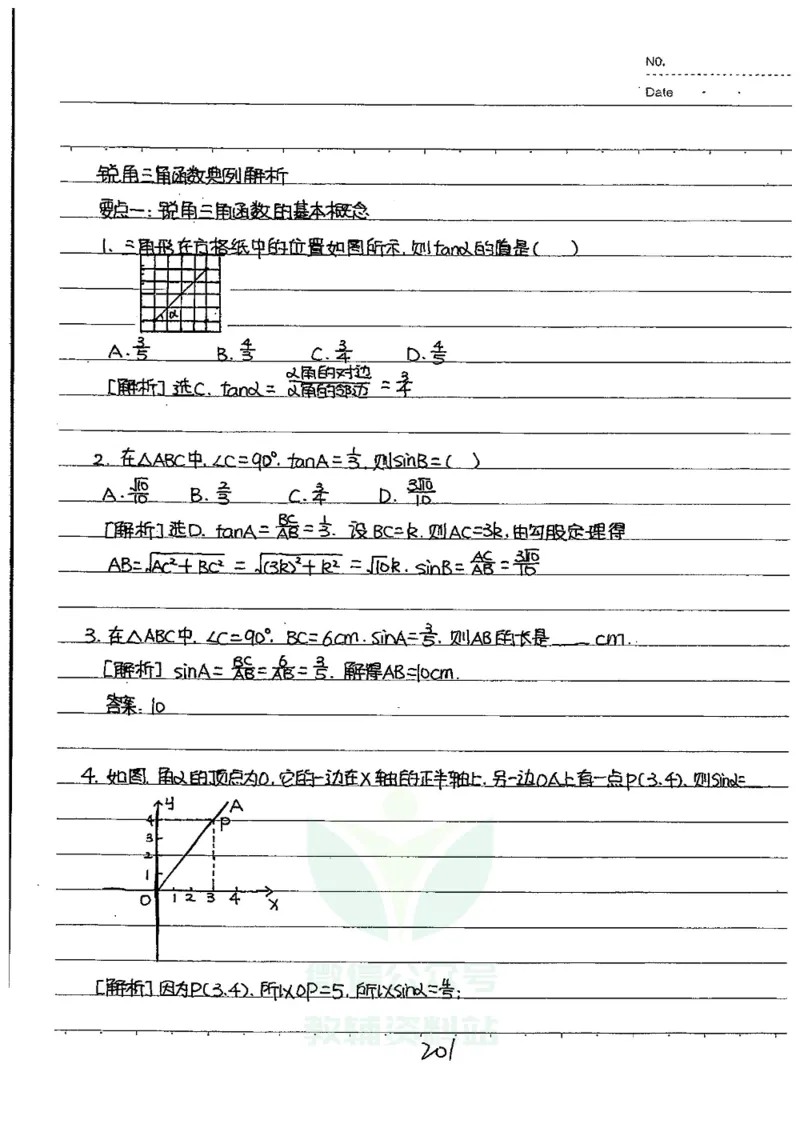 NO.
Date
锐角三角函数典例解析
要点一:锐角三角函数的基本概念
1. 三角形在方格纸中的位置如图所示,则tanα的值是( )
α
A. 3/5 B. 4/3 C. 3/4 D. 4/5
[解析] 选C. tanα = α角的对边/α角的邻边 = 3/4
2. 在△ABC中, ∠C=90°. tanA=1/3, 则sinB=( )
A. √10/10 B. 2/3 C. 3/4 D. 3√10/10
[解析] 选D. tanA = BC/AB = 1/3. 设BC=k. 则AC=3k, 由勾股定理得
AB=√AC²+BC² = √(3k)²+k² = √10k. sinB= AC/AB = 3√10/10
3. 在△ABC中. ∠C=90°. BC=6cm. sinA=3/5. 则AB的长是___cm.
[解析] sinA= BC/AB = 6/AB = 3/5. 解得AB=10cm.
答案: 10
4. 如图. 角α的顶点为O, 它的一边在X轴的正半轴上, 另一边OA上有一点P(3.4). 则sinα=__
y A
4 P
3
2
1
O 1 2 3 4 X
[解析] 因为P(3.4). 所以OP=5, 所以sinα=4/5;
微信公众号
教辅资料站
201